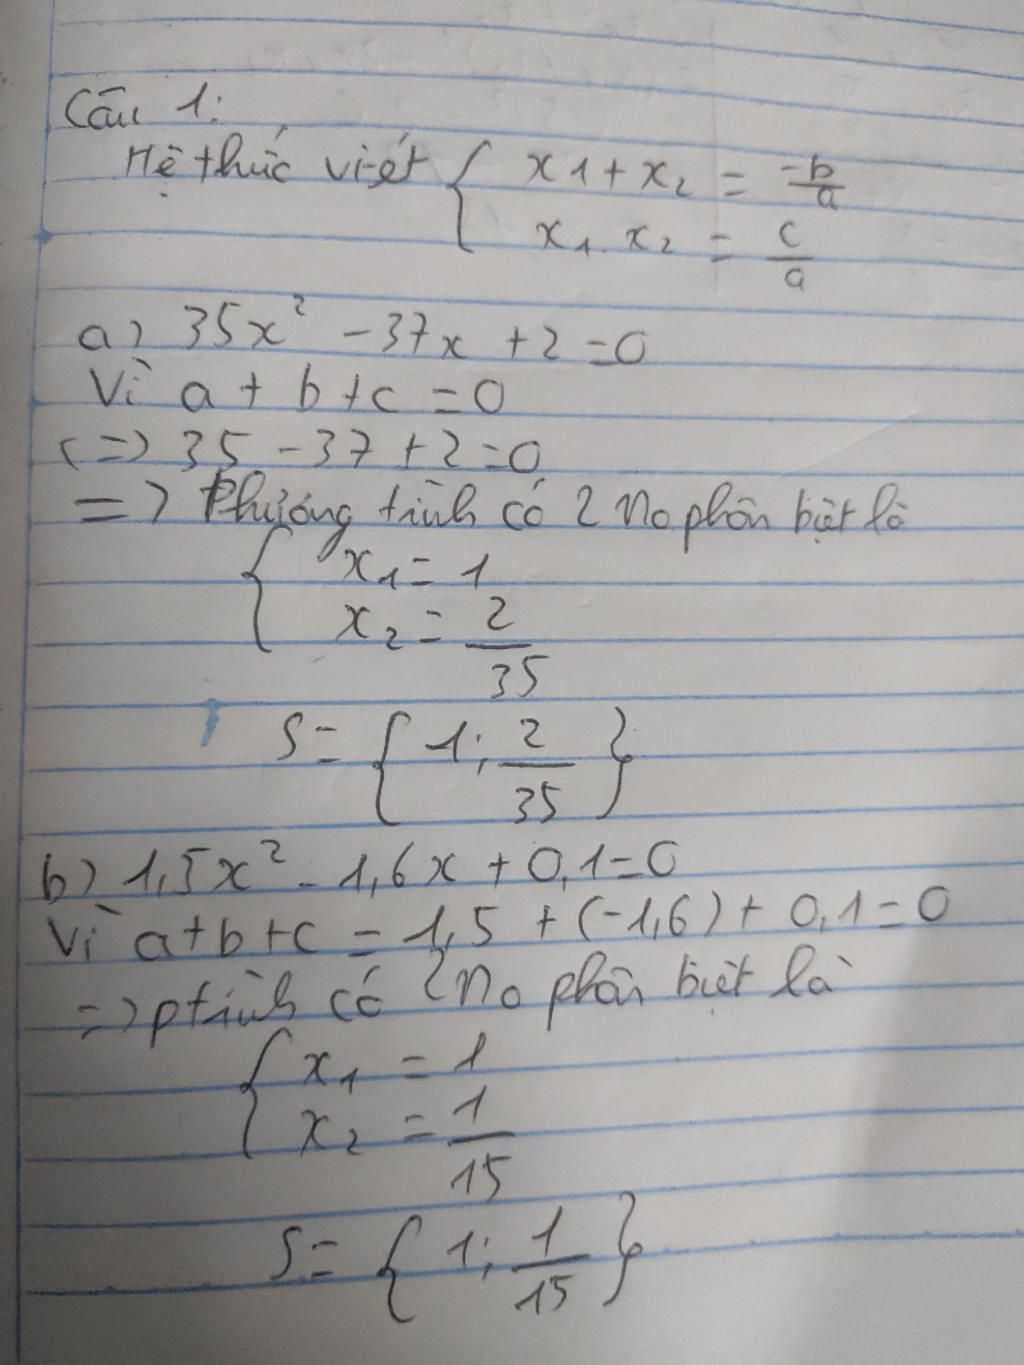 Câu 1:
Hệ thức vi-ét { x1 + x2 = -b/a
x1 . x2 = c/a
a) 35x² - 37x + 2 = 0
Vì a + b + c = 0
(=) 35 - 37 + 2 = 0
=> Phương tình có 2 no phân biệt là
{ x1 = 1
x2 = 2/35
S = { 1; 2/35 }
b) 1,5x² - 1,6x + 0,1 = 0
Vì a + b + c = 1,5 + (-1,6) + 0,1 = 0
=> ptình có 2 no phân biệt là
{ x1 = 1
x2 = 1/15
S = { 1; 1/15 }